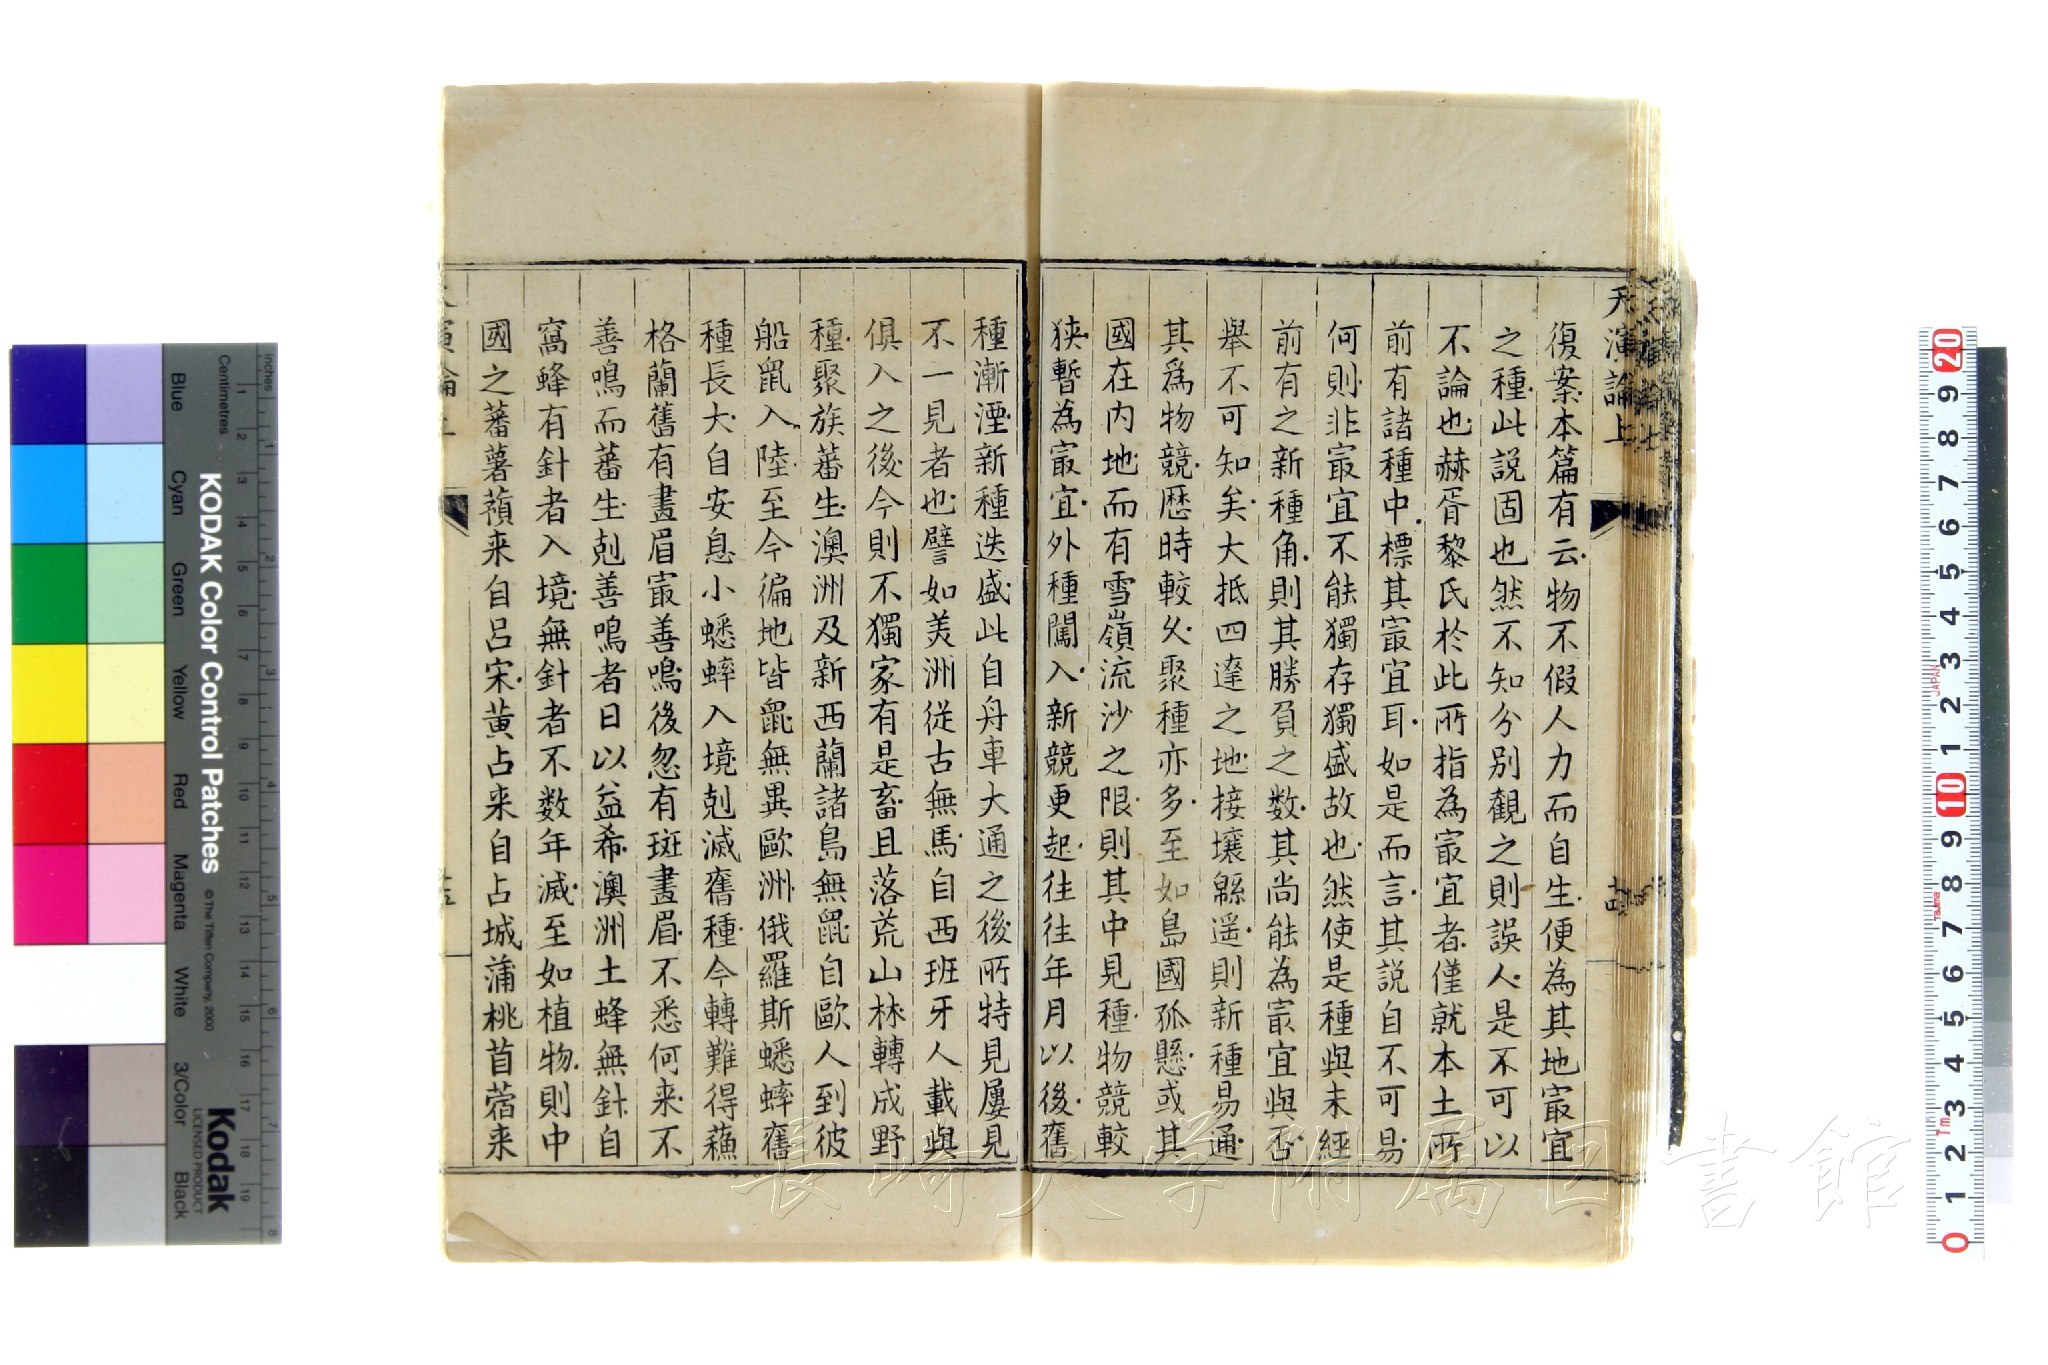 天演論上
復案本篇有云物不假人力而自生便為其地㝡宜
之種此説固也然不知分別觀之則誤人是不可以
不論也赫胥黎氏於此所指為㝡宜者僅就本土所
前有諸種中標其㝡宜耳如是而言其説自不可易
何則非㝡宜不能獨存獨盛故也然使是種與未經
前有之新種角則其勝負之数其尚能為㝡宜與否
舉不可知矣大抵四達之地接壤緜遥則新種易通
其為物競歴時較久聚種亦多至如島國孤懸或其
國在内地而有雪嶺流沙之限則其中見種物競較
狹暫為㝡宜外種闖入新競更起往往年月以後舊
種漸湮新種迭盛此自舟車大通之後所特見屢見
不一見者也譬如美洲從古無馬自西班牙人載與
俱入之後今則不獨家有是畜且落荒山林轉成野
種聚族蕃生澳洲及新西蘭諸島無鼠自歐人到彼
船鼠入陸至今徧地皆鼠無異歐洲俄羅斯蟋蟀舊
種長大自安息小蟋蟀入境剋滅舊種今轉難得蘇
格蘭舊有畫眉㝡善鳴後忽有斑畫眉不悉何來不
善鳴而蕃生剋善鳴者日以益希澳洲土蜂無針自
窩蜂有針者入境無針者不数年滅至如植物則中
國之蕃薯蓣来自呂宋黃占来自占城蒲桃苜蓿来
KODAK Color Control Patches
© The Tiffen Company, 2000
Kodak
LICENSED PRODUCT
inches
Centimetres
Blue
Cyan
Green
Yellow
Red
Magenta
White
3/Color
Black
1 2 3 4 5 6 7 8 9 10 11 12 13 14 15 16 17 18 19
1 2 3 4 5 6 7 8
20
9
8
7
6
5
4
3
2
1
10
9
8
7
6
5
4
3
2
1
0
JAPAN
Tajima
長崎大学附属図書館